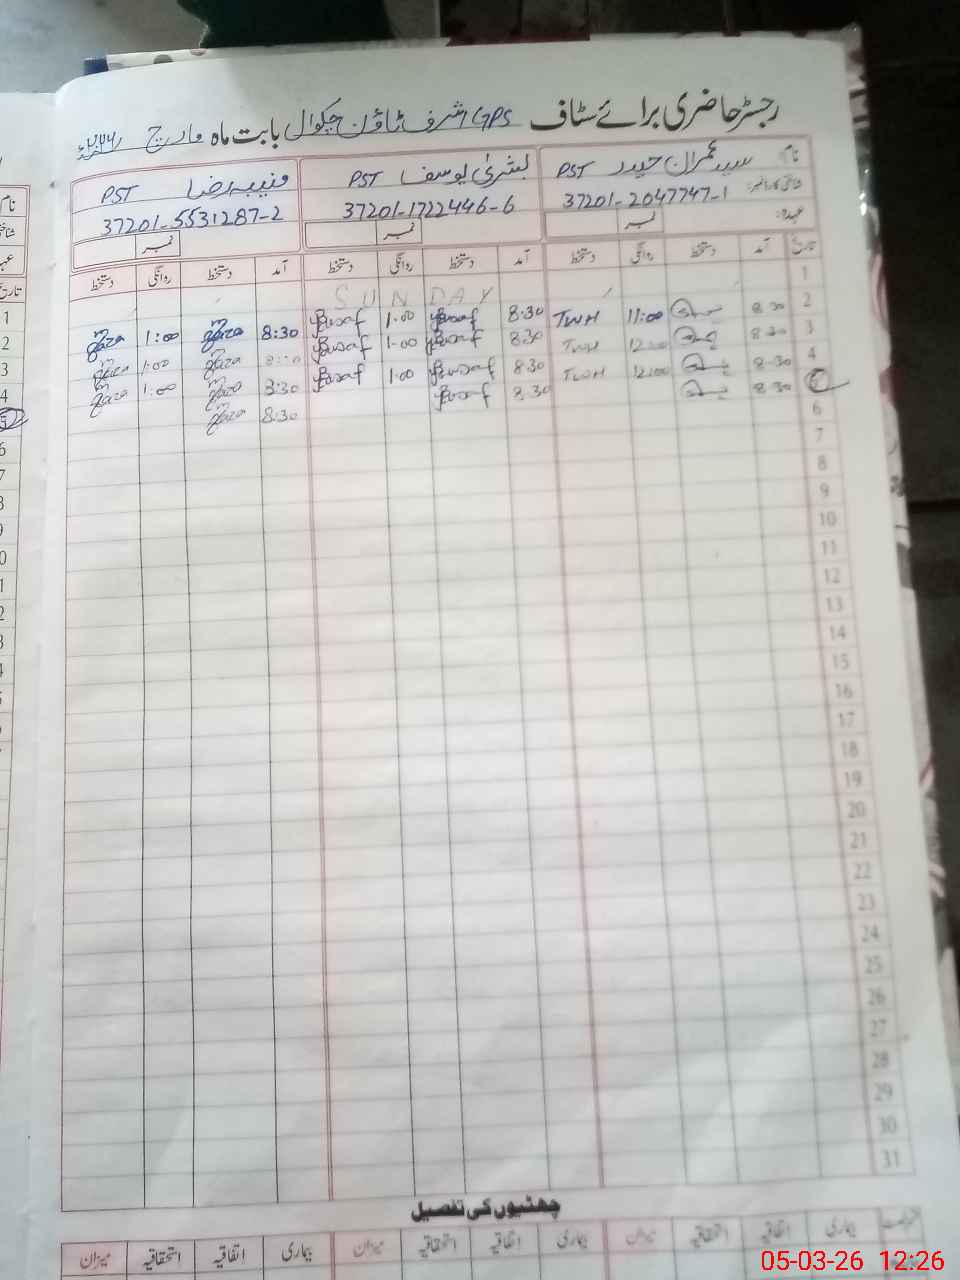 رجسٹر حاضری برائے سٹاف GPS اشرف ٹاؤن چکوال بابت ماہ مارچ
نام سید عمران حیدر PST بشریٰ یوسف PST منیب رضا PST
شناختی کارڈ نمبر: 37201-2047747-1 37201-1722446-6 37201-5531287-2
عہدہ: نمبر نمبر نمبر
تاریخ آمد دستخط روانگی دستخط آمد دستخط روانگی دستخط آمد دستخط روانگی دستخط
1 SUNDAY
2 8:30 11:00 TWH 8:30 Yusaf 1:00 Yusaf 8:30 Raza 1:00 Raza
3 8:30 12:00 TWH 8:30 Yusaf 1:00 Yusaf 8:30 Raza 1:00 Raza
4 8:30 12:00 TWH 8:30 Yusaf 1:00 Yusaf 8:30 Raza 1:00 Raza
5 8:30 8:30 Yusaf 8:30 Raza
6
7
8
9
10
11
12
13
14
15
16
17
18
19
20
21
22
23
24
25
26
27
28
29
30
31
چھٹیوں کی تفصیل
بیماری اتفاقیہ استحقاقیہ میزان بیماری اتفاقیہ استحقاقیہ میزان بیماری اتفاقیہ استحقاقیہ میزان
05-03-26 12:26